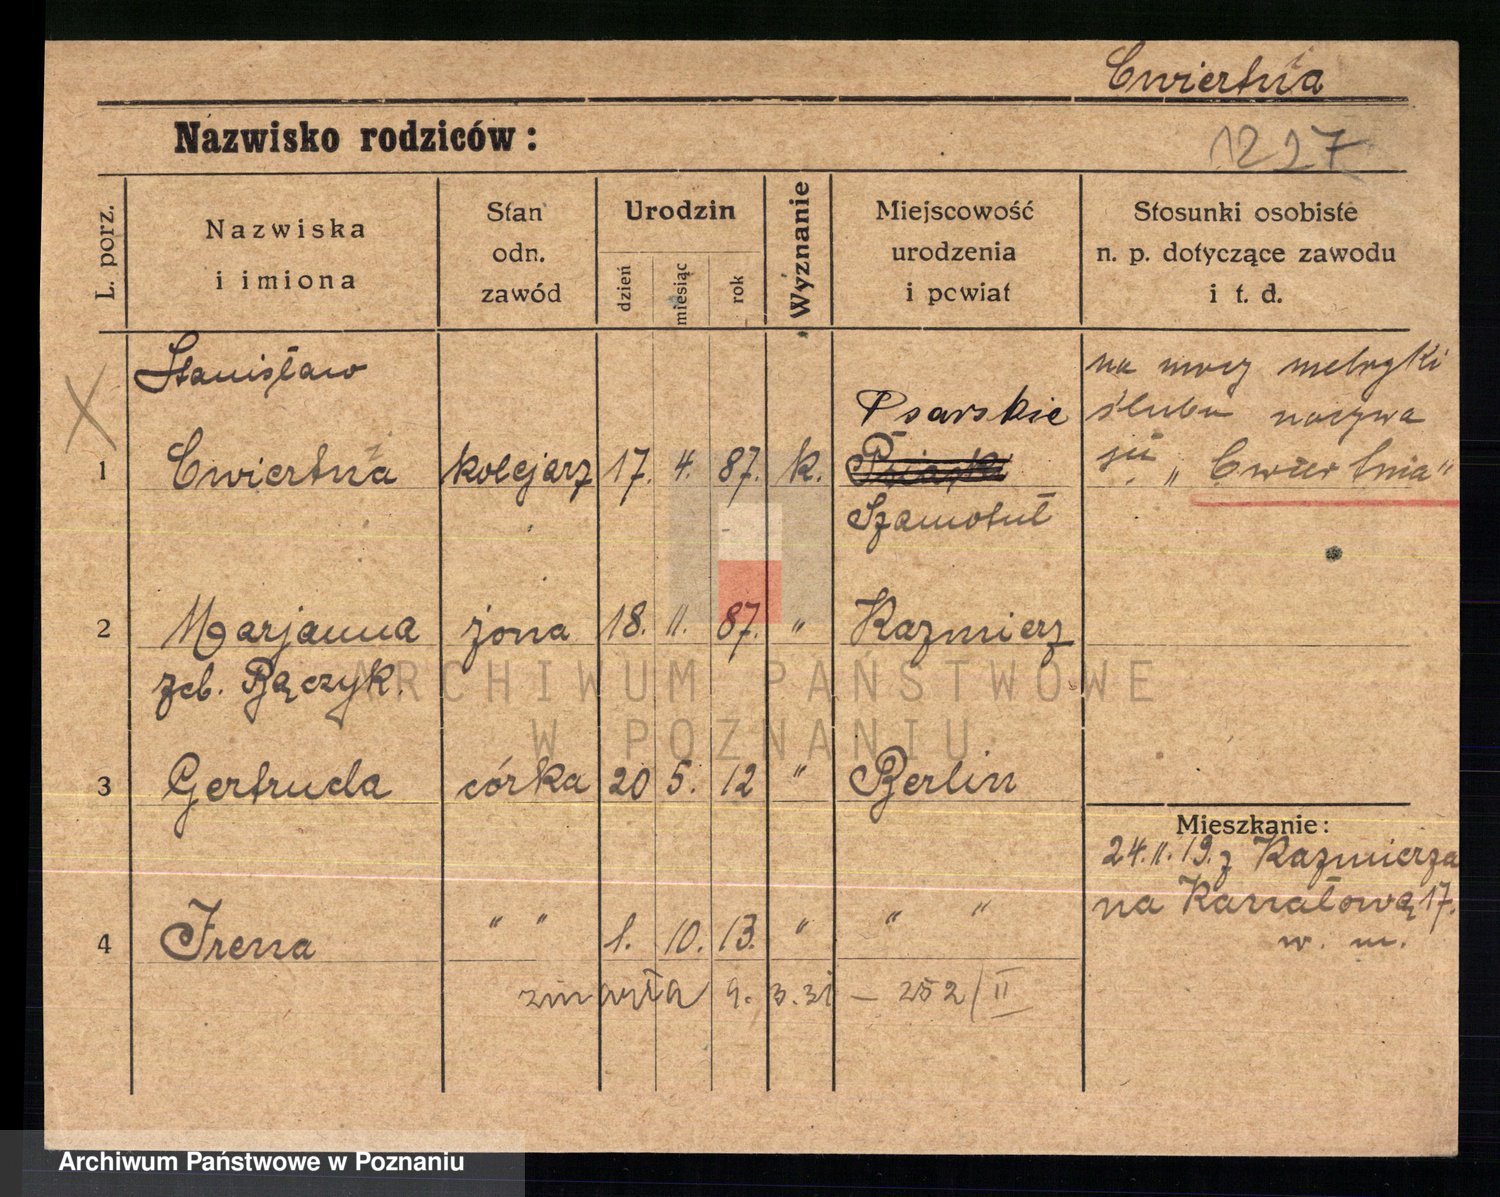 Cwiertnia
Nazwisko rodziców:
1227
L. porz.
Nazwiska
i imiona
Stan
odn.
zawód
Urodzin
dzień
miesiąc
rok
Wyznanie
Miejscowość
urodzenia
i powiat
Stosunki osobiste
n. p. dotyczące zawodu
i t. d.
Stanisław
1 Cwiertnia kolejarz 17. 4. 87. k.
Psarskie
Szamotuł
na mocy metryki
ślubu nazywa
się „Cwiertnia"
2 Marjanna żona 18. 11. 87. " Kazmierz
zeb. Bączyk.
3 Gertruda córka 20 5. 12 " Berlin
4 Irena " " 1. 10. 13. " " "
zmarła 9. 3. 31 – 252/II
Mieszkanie:
24. 11. 19. z Kazmierza
na Kanałową 17.
w. m.
ARCHIWUM PAŃSTWOWE
W POZNANIU
Archiwum Państwowe w Poznaniu